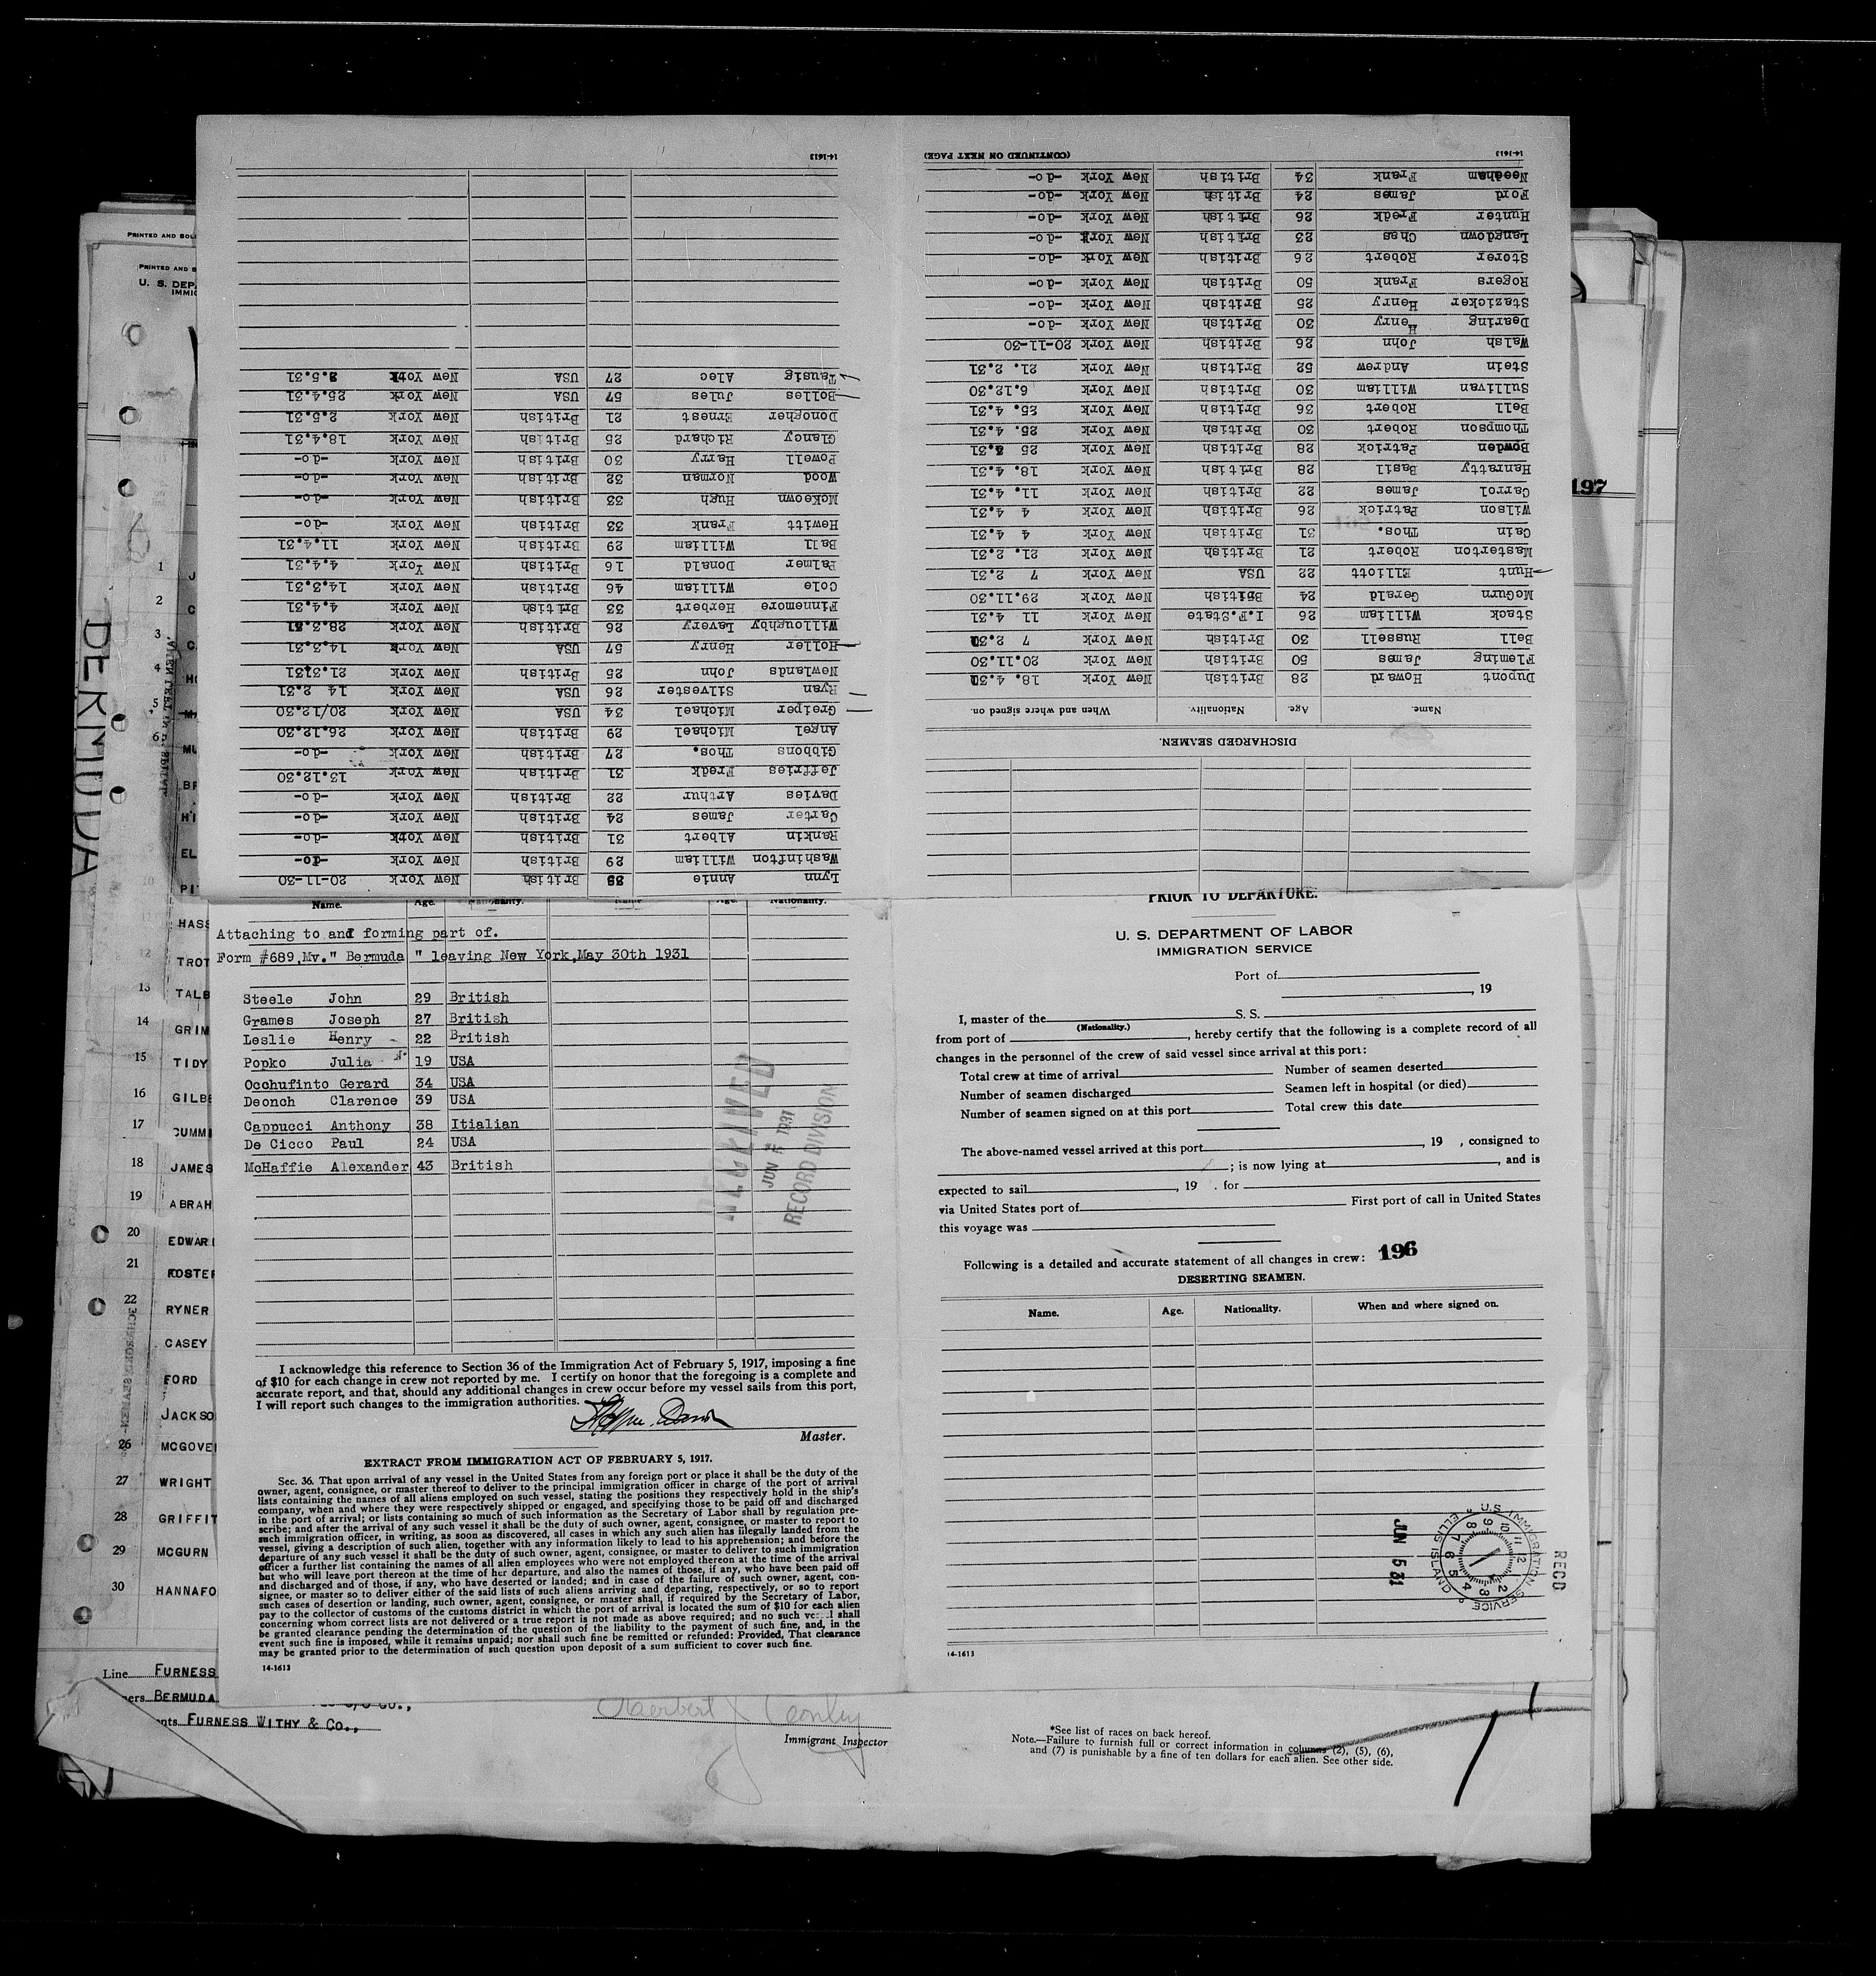 PRINTED AND SOL
PRINTED AND S
U. S. DEP
IMMIG
BERMUDA
197
14-1613
DISCHARGED SEAMEN.
Name. Age. Nationality. When and where signed on.
Dupont Howard 28 British New York 18. 4.31
Fleming James 50 British New York 20.11.30
Bell Russell 30 British New York 7 2.31
Stack William 26 I.F.State New York 11 4.31
McGurn Gerald 24 British New York 29.11.30
Hunt Elliott 22 USA New York 7 2.31
Masterton Robert 21 British New York 21. 2.31
Cain Thos. 31 British New York 4 4.31
Wilson Patrick 26 British New York 4 4.31
Carrol James 22 British New York 11. 4.31
Hanratty Basil 28 British New York 18. 4.31
Bowden Patrick 28 British New York 25 .31
Thompson Robert 30 British New York 25. 4.31
Bell Robert 36 British New York 25. 4.31
Sullivan William 30 British New York 6.12.30
Stein Andrew 52 British New York 21. 2.31
Walsh John 26 British New York 20-11-30
Dearing Henry 30 British New York -do-
Stazicker Henry 25 British New York -do-
Rogers Frank 50 British New York -do-
Storer Robert 26 British New York -do-
Langdown Chas 23 British New York -do-
Hunter Fredk 26 British New York -do-
Ford James 24 British New York -do-
Needham Frank 34 British New York -do-
14-1613 (CONTINUED ON NEXT PAGE)
Lynn Annie British New York 20-11-30
Washinfton William 29 British New York -do-
Rankin Albert 31 British New York -do-
Carter James 24 British New York -do-
Davies Arthur 22 British New York -do-
Jeffries Fredk 31 British New York 13.12.30
Gibbons Thos. 27 British New York -do-
Angel Michael 29 British New York 26.12.30
Greiper Michael 34 USA New York 20/12.30
Ryan Silvester 26 USA New York 14 2.31
Newlands John 25 British New York 21.3131
Holler Henry 57 USA New York 14.3.31
Willoughby Lavery 26 British New York 28.3.31
Finnemore Herbert 33 British New York 4.4.31
Cole William 46 British New York 14.3.31
Palmer Donald 16 British New York 4.4.31
Ball William 29 British New York 11.4.31
Hewitt Frank 33 British New York -do-
McKeown Hugh 33 British New York -do-
Wood Norman 32 British New York -do-
Powell Harry 30 British New York -do-
Glancy Richard 25 British New York 18.4.31
Donogher Ernest 21 British New York 2.5.31
Bolles Jules 57 USA New York 25.4.31
Tausig Alec 27 USA New York .5.31
Name. Age. Nationality. Name Age. Nationality.
Attaching to and forming part of.
Form #689,Mv." Bermuda " leaving New York,May 30th 1931
Steele John 29 British
Grames Joseph 27 British
Leslie Henry - 22 British
Popko Julia 19 USA
Occhufinto Gerard 34 USA
Deonch Clarence 39 USA
Cappucci Anthony 38 Itialian
De Cicco Paul 24 USA
McHaffie Alexander 43 British
RECEIVED
JUN 1931
RECORD DIVISION
I acknowledge this reference to Section 36 of the Immigration Act of February 5, 1917, imposing a fine
of $10 for each change in crew not reported by me. I certify on honor that the foregoing is a complete and
accurate report, and that, should any additional changes in crew occur before my vessel sails from this port,
I will report such changes to the immigration authorities.
Master.
EXTRACT FROM IMMIGRATION ACT OF FEBRUARY 5, 1917.
Sec. 36. That upon arrival of any vessel in the United States from any foreign port or place it shall be the duty of the
owner, agent, consignee, or master thereof to deliver to the principal immigration officer in charge of the port of arrival
lists containing the names of all aliens employed on such vessel, stating the positions they respectively hold in the ship's
company, when and where they were respectively shipped or engaged, and specifying those to be paid off and discharged
in the port of arrival; or lists containing so much of such information as the Secretary of Labor shall by regulation pre-
scribe; and after the arrival of any such vessel it shall be the duty of such owner, agent, consignee, or master to report to
such immigration officer, in writing, as soon as discovered, all cases in which any such alien has illegally landed from the
vessel, giving a description of such alien, together with any information likely to lead to his apprehension; and before the
departure of any such vessel it shall be the duty of such owner, agent, consignee, or master to deliver to such immigration
officer a further list containing the names of all alien employees who were not employed thereon at the time of the arrival
but who will leave port thereon at the time of her departure, and also the names of those, if any, who have been paid off
and discharged and of those, if any, who have deserted or landed; and in case of the failure of such owner, agent, con-
signee, or master so to deliver either of the said lists of such aliens arriving and departing, respectively, or so to report
such cases of desertion or landing, such owner, agent, consignee, or master shall, if required by the Secretary of Labor,
pay to the collector of customs of the customs district in which the port of arrival is located the sum of $10 for each alien
concerning whom correct lists are not delivered or a true report is not made as above required; and no such vessel shall
be granted clearance pending the determination of the question of the liability to the payment of such fine, and, in the
event such fine is imposed, while it remains unpaid; nor shall such fine be remitted or refunded: Provided, That clearance
may be granted prior to the determination of such question upon deposit of a sum sufficient to cover such fine.
14-1613
PRIOR TO DEPARTURE.
U. S. DEPARTMENT OF LABOR
IMMIGRATION SERVICE
Port of
, 19
I, master of the S. S.
(Nationality.)
from port of , hereby certify that the following is a complete record of all
changes in the personnel of the crew of said vessel since arrival at this port:
Total crew at time of arrival Number of seamen deserted
Number of seamen discharged Seamen left in hospital (or died)
Number of seamen signed on at this port Total crew this date
The above-named vessel arrived at this port , 19 , consigned to
; is now lying at , and is
expected to sail , 19 . for
via United States port of First port of call in United States
this voyage was
Following is a detailed and accurate statement of all changes in crew: 196
DESERTING SEAMEN.
Name. Age. Nationality. When and where signed on.
RECD
JUN 5 31
U.S. IMMIGRATION SERVICE
ELLIS ISLAND
14-1613
1
2
3
4
5
6
10
HASS
12 TROT
13 TALB
14 GRIM
15 TIDY
16 GILBE
17 CUMMI
18 JAMES
19 ABRAH
20 EDWARD
21 FOSTER
22 RYNER
CASEY
FORD
JACKSO
26 MCGOVE
27 WRIGHT
28 GRIFFIT
29 MCGURN
30 HANNAFO
Line FURNESS
ers BERMUDA S/S CO.,
nts FURNESS WITHY & CO.,
Immigrant Inspector
*See list of races on back hereof.
Note.—Failure to furnish full or correct information in columns (2), (5), (6),
and (7) is punishable by a fine of ten dollars for each alien. See other side.